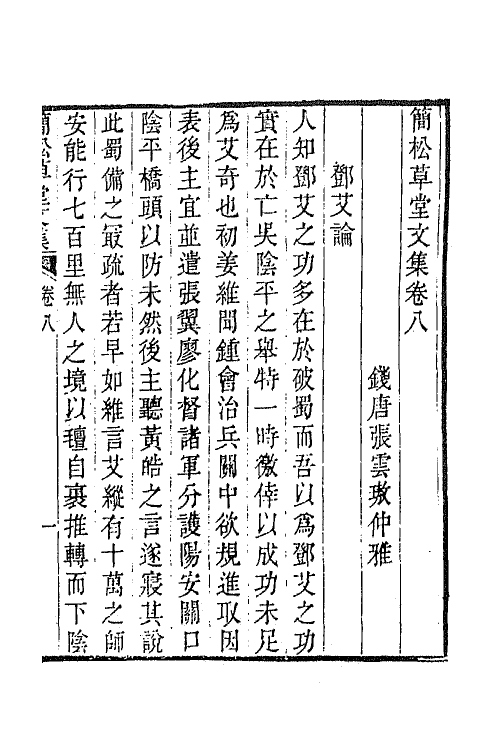 簡松草堂文集卷八
錢唐張雲璈仲雅
鄧艾論
人知鄧艾之功多在於破蜀而吾以爲鄧艾之功
實在於亡吳陰平之舉特一時徼倖以成功未足
爲艾奇也初姜維聞鍾會治兵關中欲規進取因
表後主宜並遣張翼廖化督諸軍分護陽安關口
陰平橋頭以防未然後主聽黃皓之言遂寢其說
此蜀備之最疏者若早如維言艾縱有十萬之師
安能行七百里無人之境以氊自裹推轉而下陰
簡松草堂文集 卷八 一